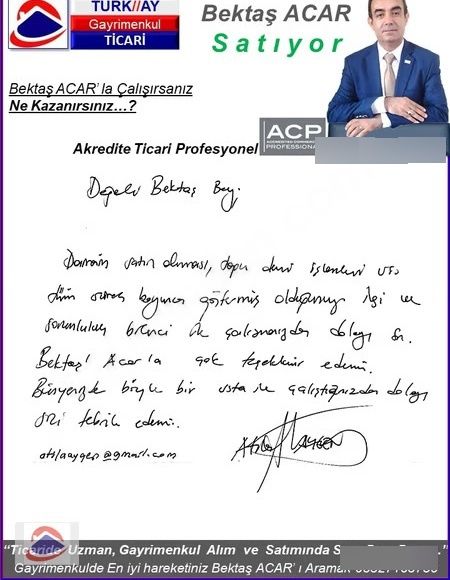 TURK//AY
Gayrimenkul
TİCARİ
Bektaş ACAR
Satıyor
Bektaş ACAR' la Çalışırsanız
Ne Kazanırsınız…?
ACP
ACCREDITED COMMERCIAL
PROFESSIONAL
Akredite Ticari Profesyonel
Değerli Bektaş Bey,
Dairenin satın alınması, tapu devri işlemleri vs.
tüm süreç boyunca göstermiş olduğunuz ilgi ve
sorumluluk bilinci ile çalışmanızdan dolayı
Bektaş Acar'la çok teşekkür ederim.
böyle bir usta ile çalıştığınızdan dolayı
sizi tebrik ederim.
atillaaygen@gmail.com
AYGEN
"Ticaride Uzman, Gayrimenkul Alım ve Satımında
Gayrimenkulde En iyi hareketiniz Bektaş ACAR' ı Aramak